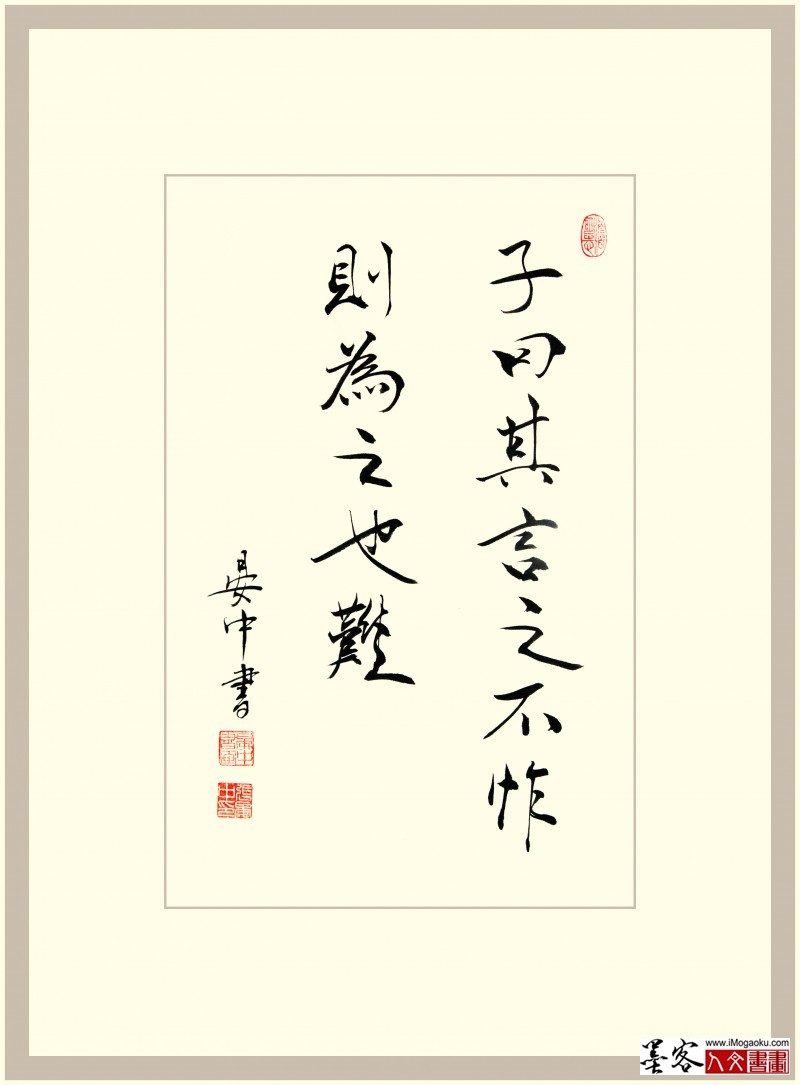 子曰其言之不怍
則為之也難
晏中書
www.iMogaoku.com
墨客
人文書畫